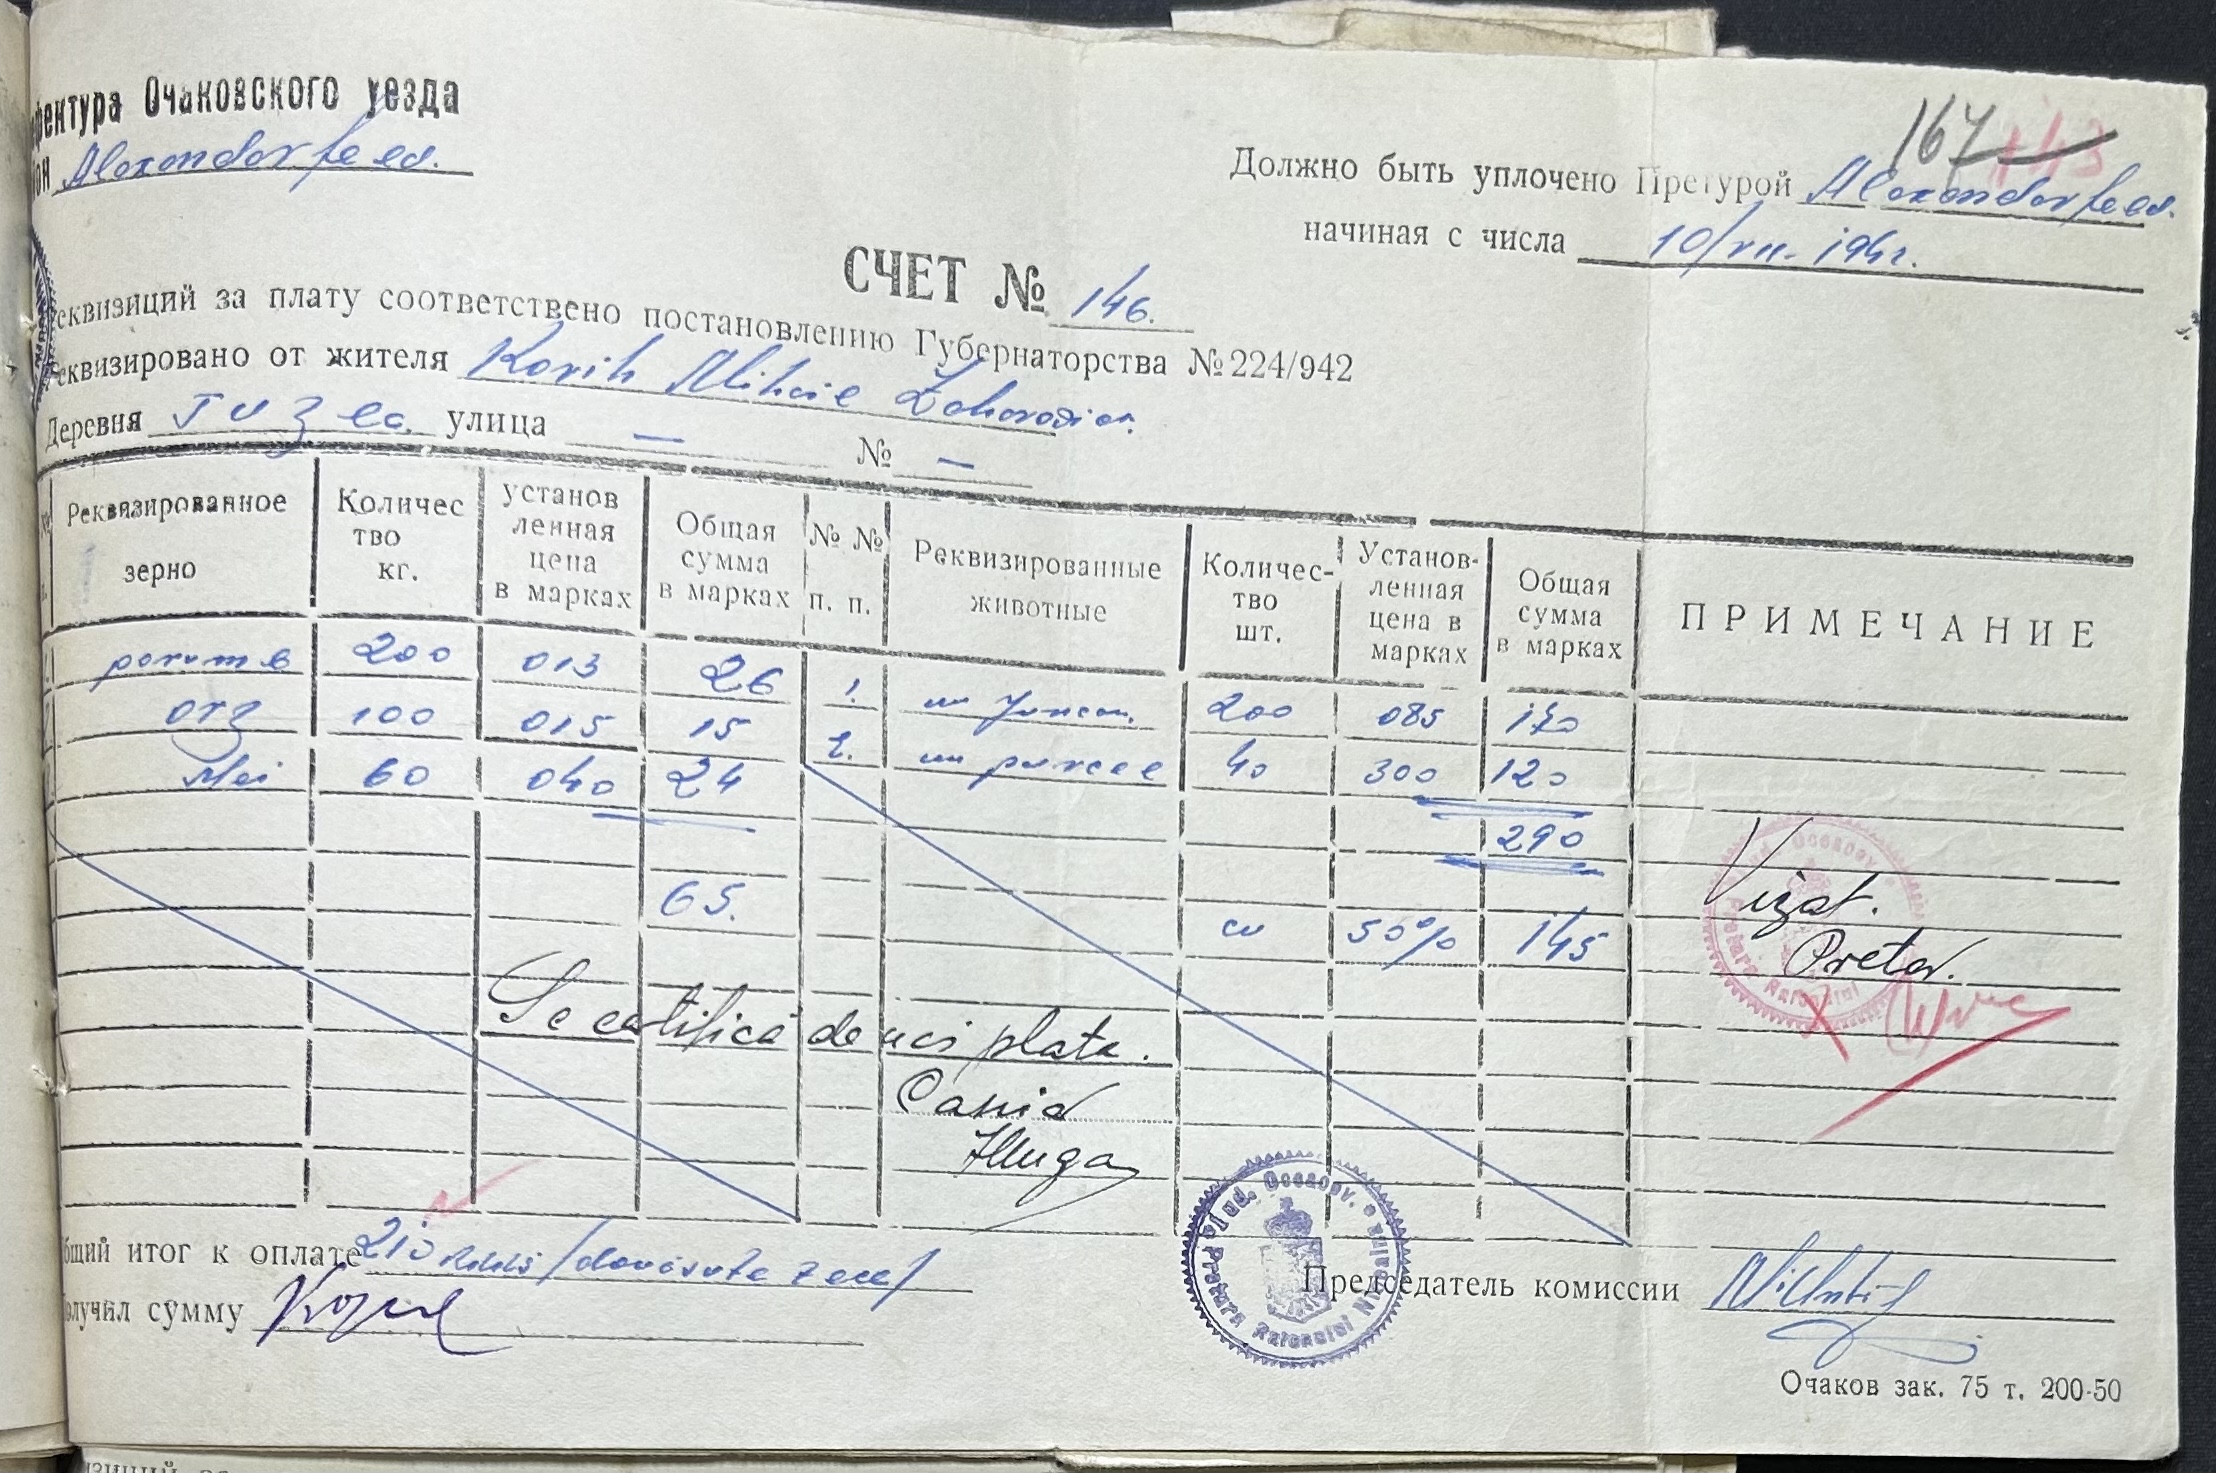 фектура Очаковского уезда
он Alexandorfeld.
167 143
Должно быть уплочено Претурой Alexandorfeld.
начиная с числа 10/VII. 1942.
СЧЕТ № 146.
еквизиций за плату соответствено постановлению Губернаторства № 224/942
еквизировано от жителя Mihail
Деревня улица — № —
Реквизированное зерно Количес тво кг. установ ленная цена в марках Общая сумма в марках № № п. п. Реквизированные животные Количес- тво шт. Установ- ленная цена в марках Общая сумма в марках ПРИМЕЧАНИЕ
porumb 200 013 26 1. un juncan. 200 085 170
orz 100 015 15 2. un purcel 40 300 120
Mei 60 040 24
290
65.
cu 50% 145
Vizat.
Pretor.
Se certifică de noi plata.
бщий итог к оплате 210 /douăsute zece/
олучил сумму
Председатель комиссии
Jud. Oceacov
Pretura Raionului
Jud. Oceacov
Pretura Raionului
Очаков зак. 75 т. 200-50